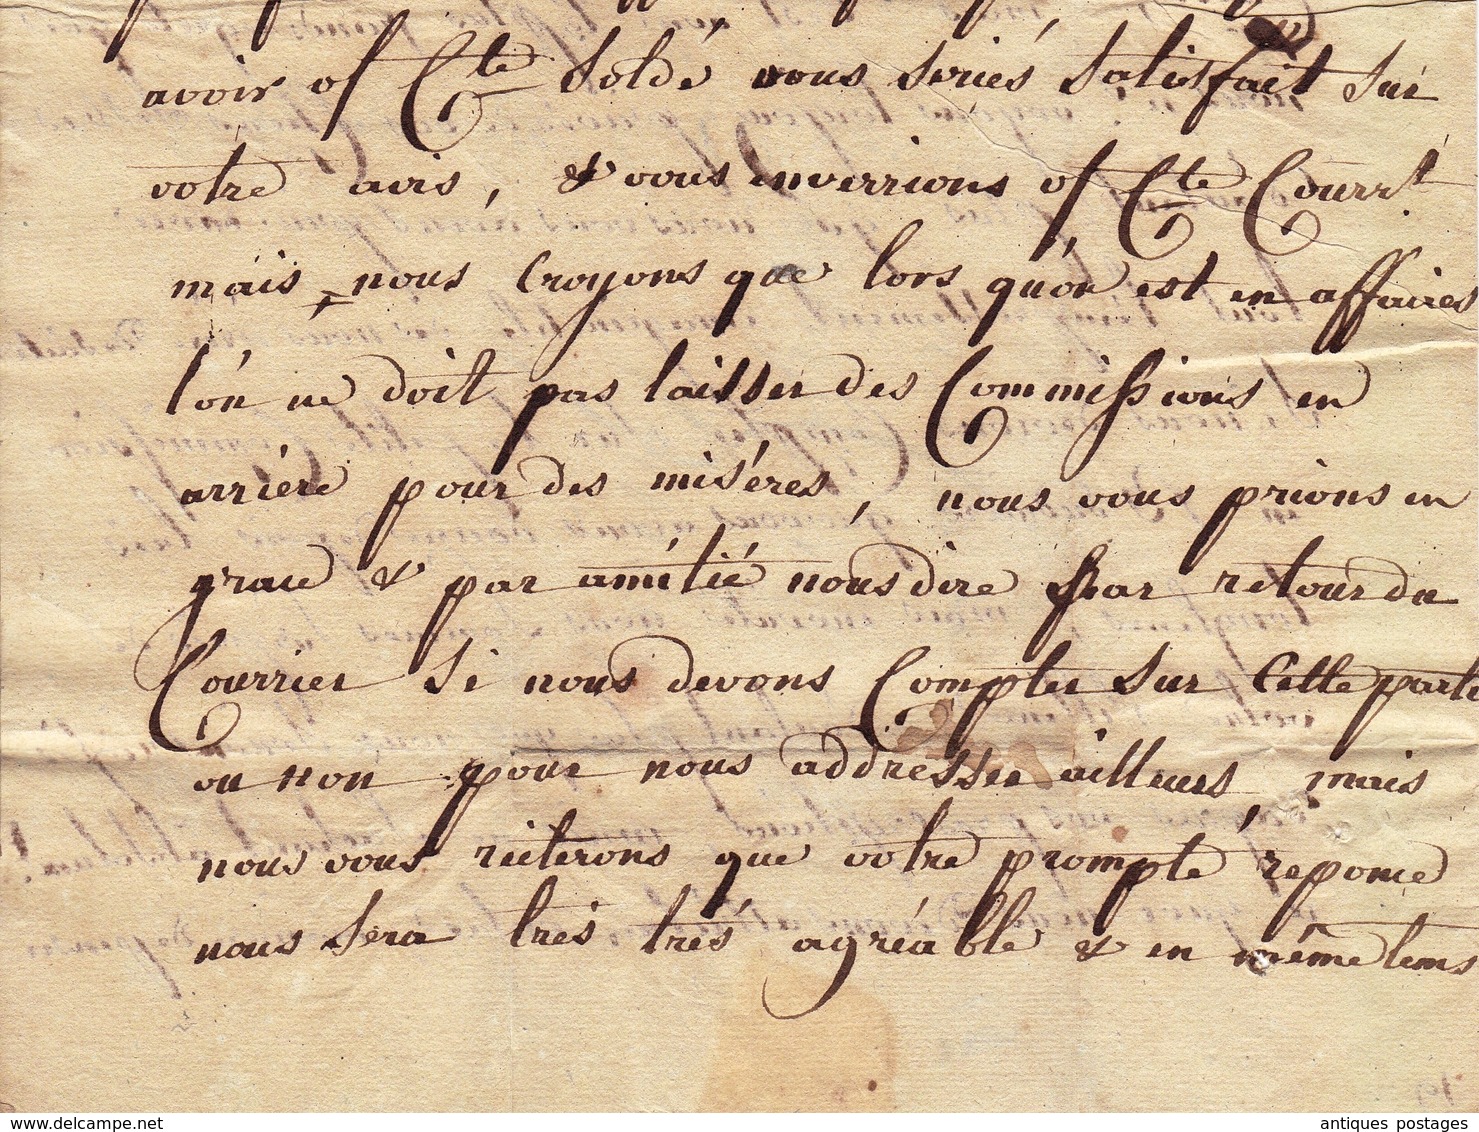 avoir of Cte Soldé vous seriés Satisfait sur
votre avis, & vous enverrions of Cte Courrt
mais nous Croyons que lors qu'on est en affaires
l'on ne doit pas laisser des Commissions en
arriére pour des miséres, nous vous prions en
grace & par amitié nous dire par retour du
Courrier si nous devons Compter sur Cette partie
ou non pour nous addresser ailleurs, mais
nous vous reiterons que votre prompte reponce
nous sera très très agréable & en même tems
antiques postages
delcampe.net